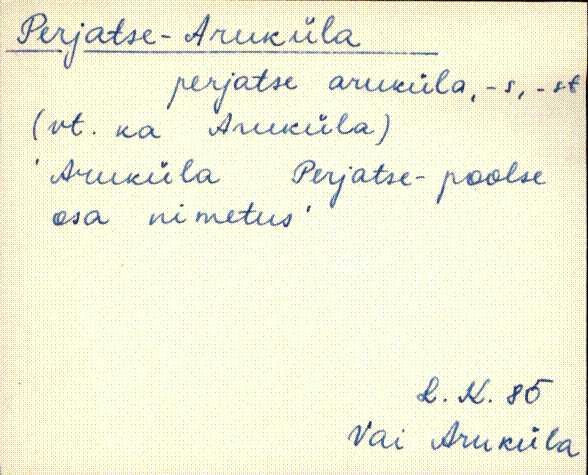 Perjatse-Aruküla
perjatse aruküla, -s, -st
(vt. ka Aruküla)
'Aruküla Perjatse-poolse
osa nimetus'
L. K. 85
Vai Aruküla